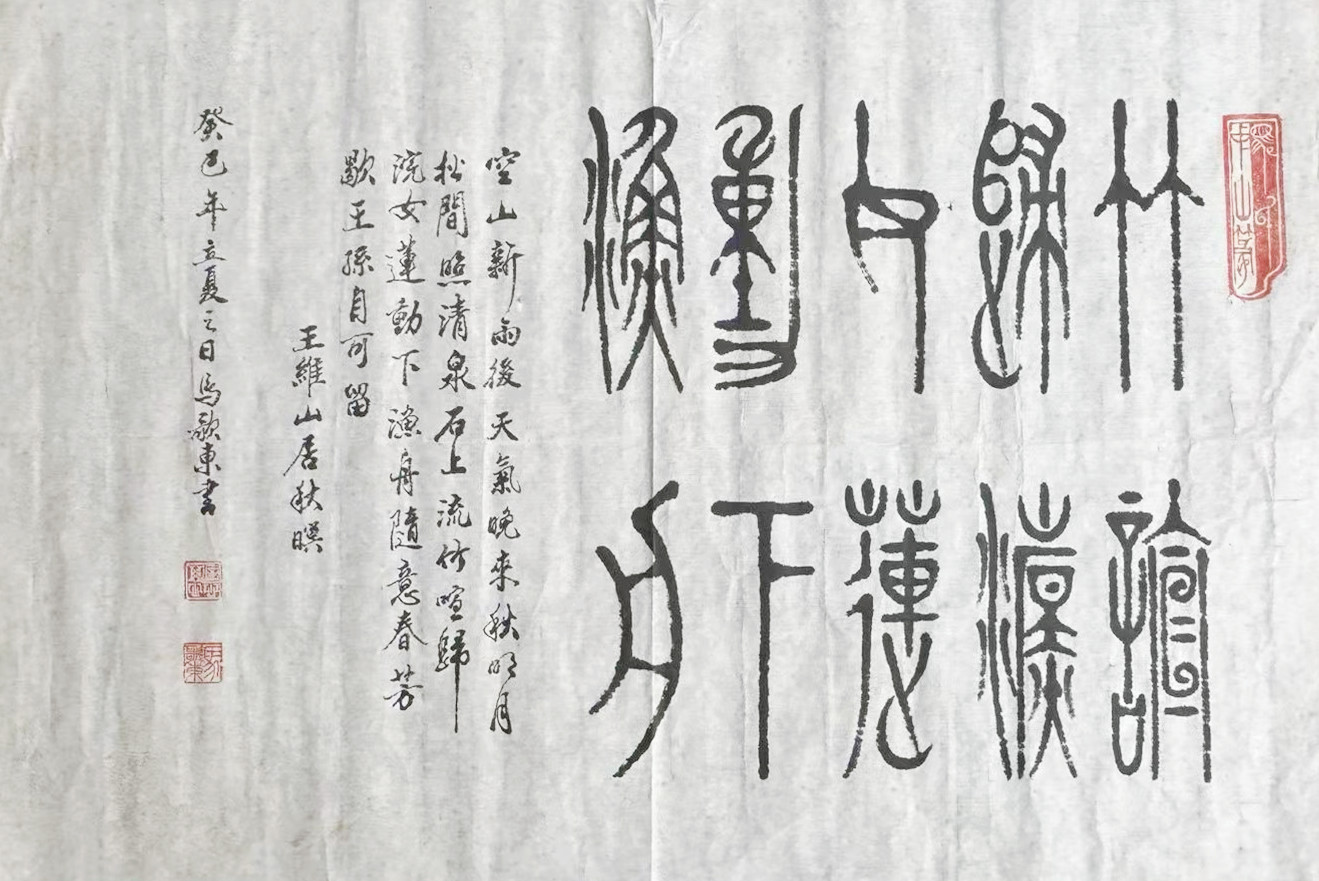 竹諠
歸浣
女蓮
動下
漁舟
空山新雨後天氣晚來秋明月
松間照清泉石上流竹喧歸
浣女蓮動下漁舟隨意春芳
歇王孫自可留
王維山居秋暝
癸巳年立夏之日馬歌東書